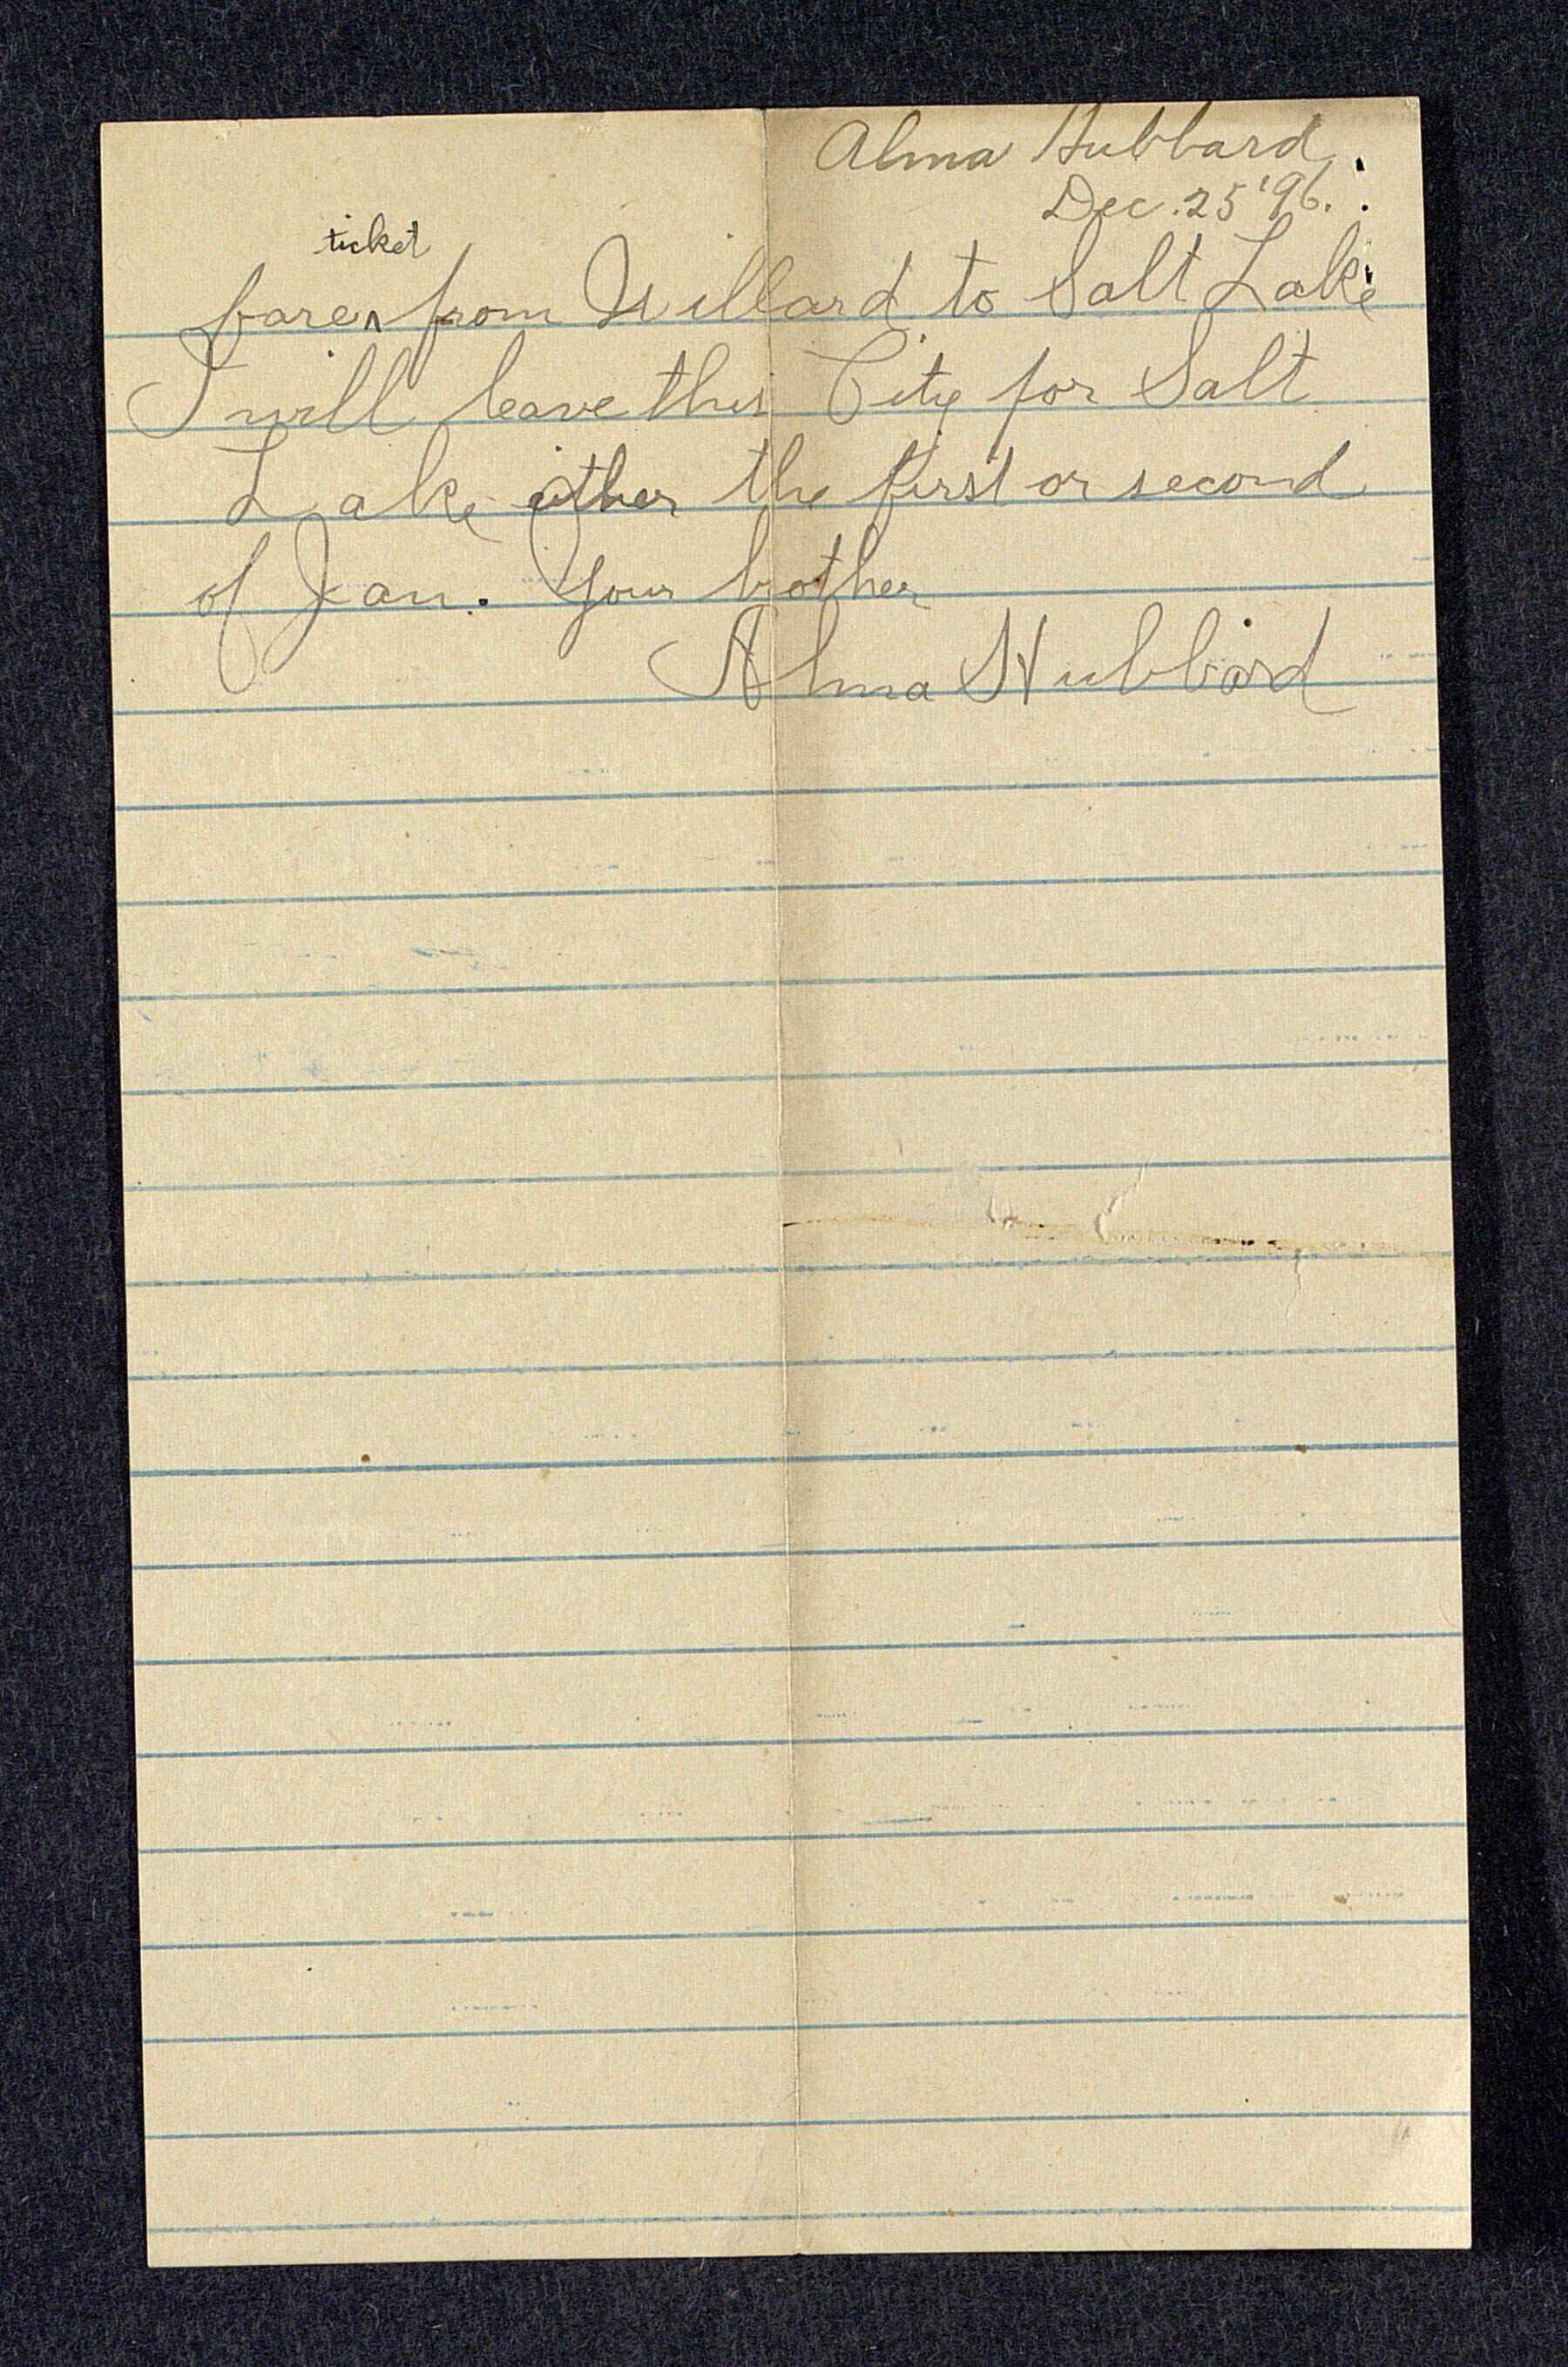 Alma Hubbard.
Dec. 25 '96.
ticket
fare ^ from Willard to Salt Lake
I will leave this City for Salt
Lake either the first or second
of Jan. Your brother
Alma Hubbard